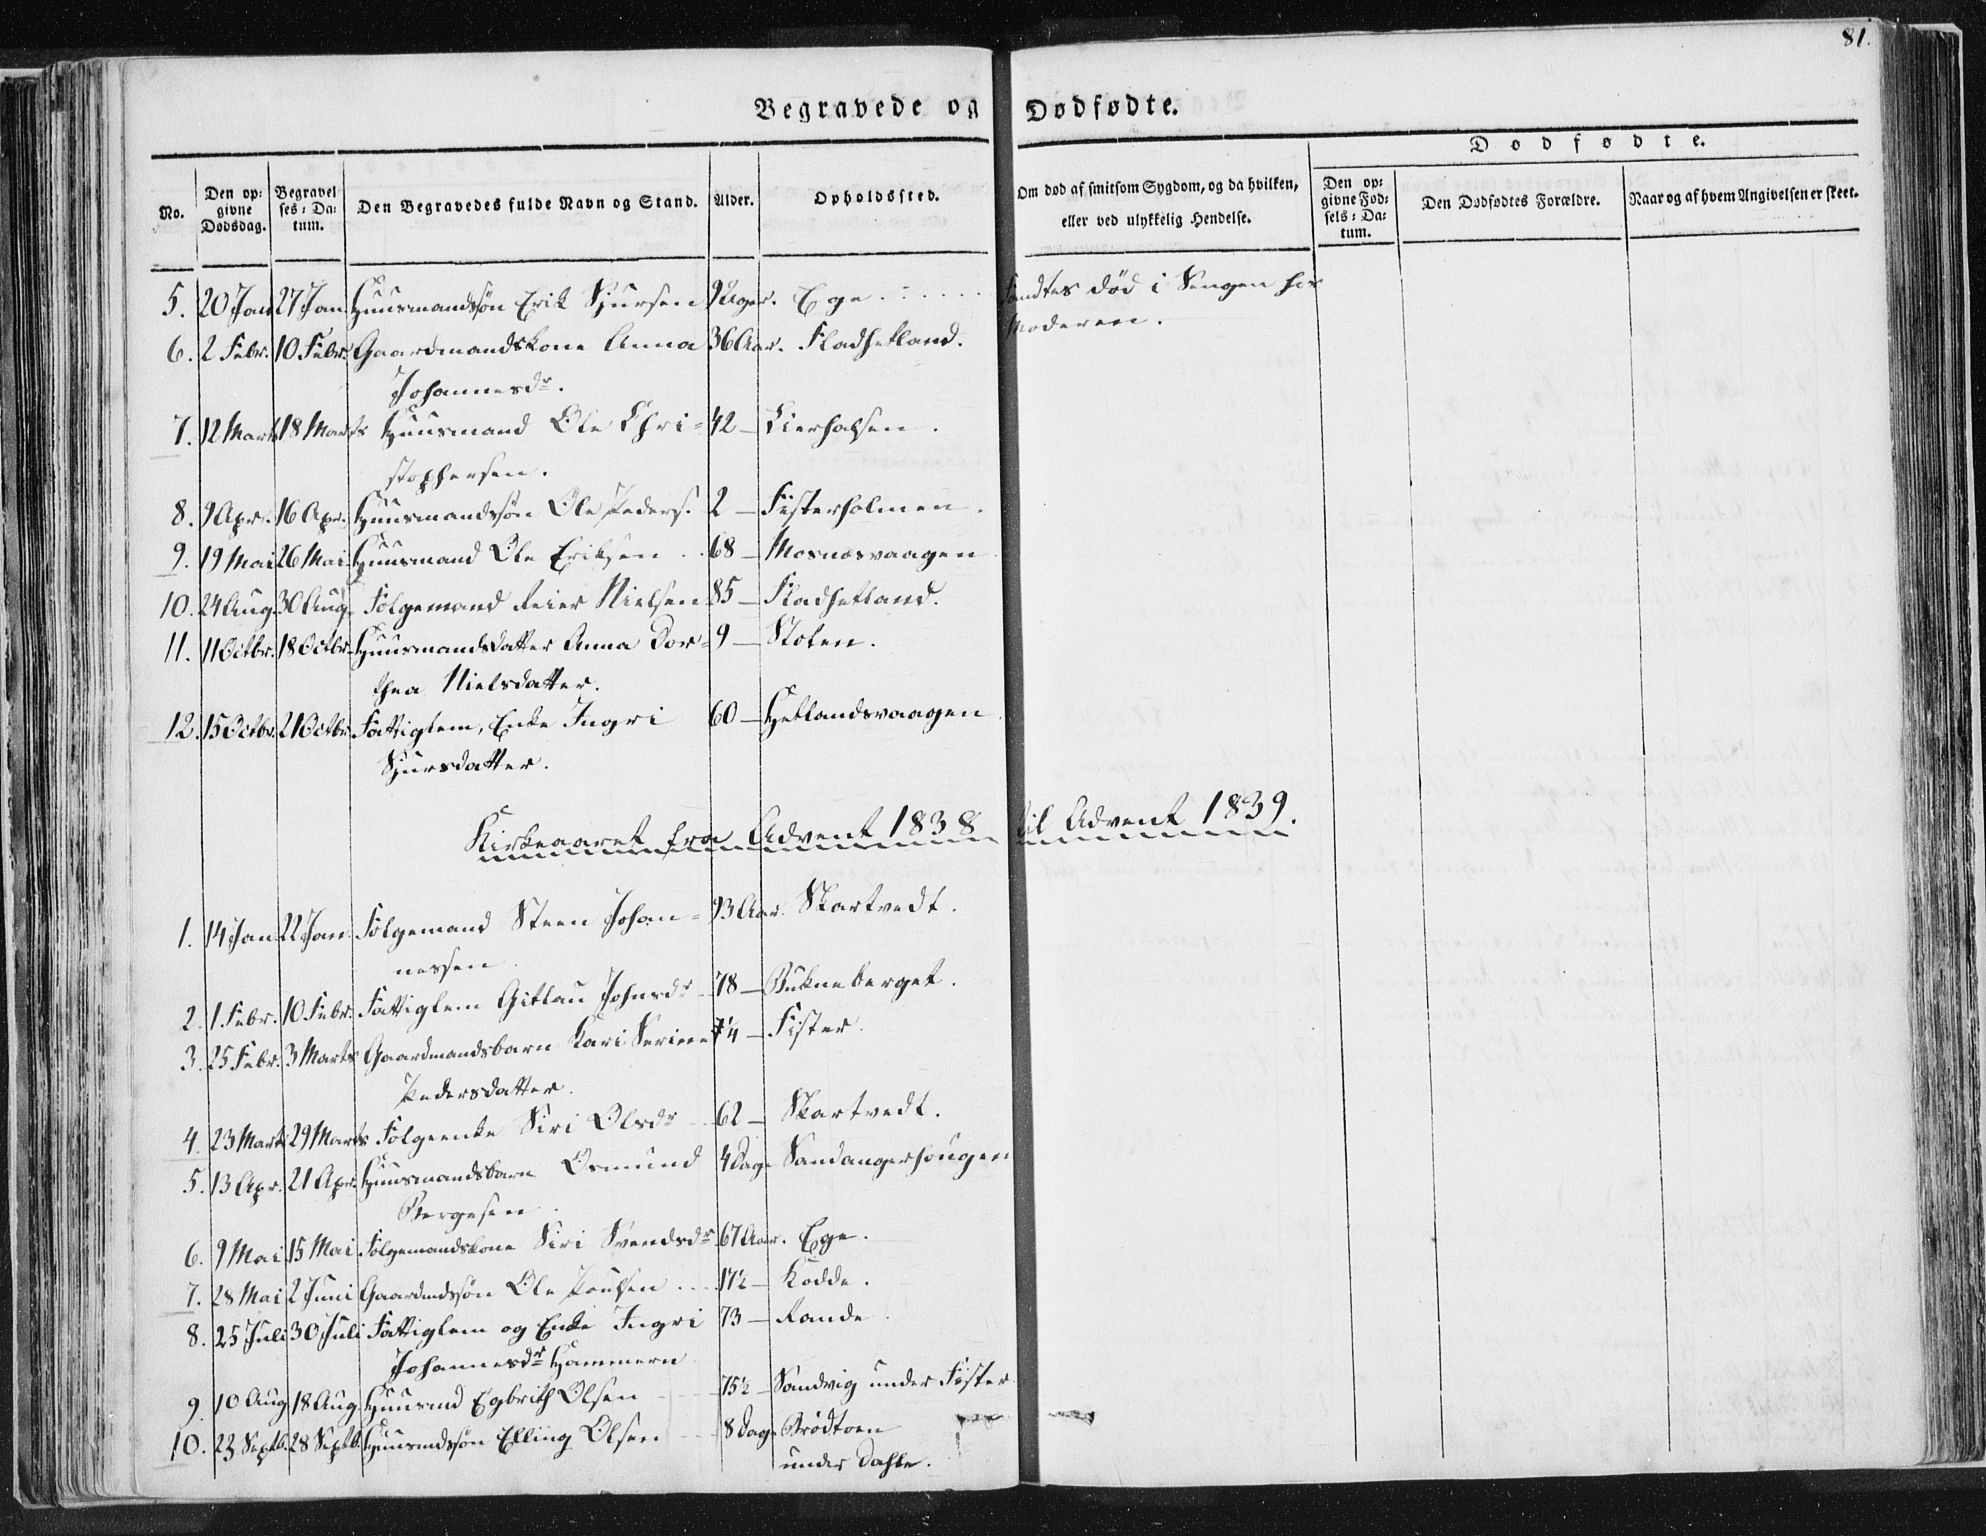 81.
Begravede og Dødfødte.
No. Den opgivne Dødsdag. Begravelses-Datum. Den Begravedes fulde Navn og Stand. Alder. Opholdssted. Om død af smitsom Sygdom, og da hvilken, eller ved ulykkelig Hendelse. Dødfødte. Den opgivne Fødsels-Datum. Den Dødfødtes Forældre. Naar og af hvem Angivelsen er skeet.
5. 20 Jan 27 Jan Huusmandssøn Erik Sjursen 9 Uger. Ege . . . . . fandtes død i Sengen hos
Moderen.
6. 2 Febr. 10 Febr. Gaardmandskone Anna 36 Aar. Fladhetland.
Johannesdr.
7. 12 Marts 18 Marts Huusmand Ole Chri- 42 – Kierhalsen.
stophersen.
8. 9 Apr. 16 Apr. Huusmandssøn Ole Peders. 2 – Fisterholmen.
9. 19 Mai 26 Mai Huusmand Ole Eriksen . . 68 – Mosnæsvaagen
10. 24 Aug. 30 Aug. Følgemand Reier Nielsen 85 – Fladhetland.
11. 11 Octbr. 18 Octbr. Huusmandsdatter Anna Dor- 9 – Stolen.
thea Nielsdatter.
12. 15 Octbr. 21 Octbr. Fattiglem, Enke Ingri 60 – Hetlandsvaagen
Sjursdatter.
Kirkeaaret fra Advent 1838 til Advent 1839.
1. 14 Jan 22 Jan. Følgemand Steen Johan- 93 Aar. Skartvedt.
nessen
2. 1. Febr. 10 Febr. Fattiglem Gitlau Johnsdr 78 – Bukneberget.
3. 25 Febr. 3 Marts Gaardmandsbarn Kari Serine 1/4 – Fister.
Pedersdatter.
4. 23 Marts 29 Marts Følgeenke Siri Olsdr 62 – Skartvedt.
5. 13 Apr. 21 Apr. Huusmandsbarn Osmund 4 Dage Sandangerhougen
Bergesen.
6. 9 Mai 15 Mai Følgemandskone Siri Svendsdr 67 Aar. Ege.
7. 28 Mai 2 Juni Gaardmdssøn Ole Poulsen . . 17½ – Kodde.
8. 25 Juli 30 Juli Fattiglem og Enke Ingri 73 – Rande
Johannesdr Hammern
9. 10 Aug 18 Aug. Huusmd Egbrith Olsen 75½ – Sandvig under Fister
10. 23 Septb. 28 Septb. Huusmdssøn Elling Olsen 8 Dage Brødtoen
under Dahle.